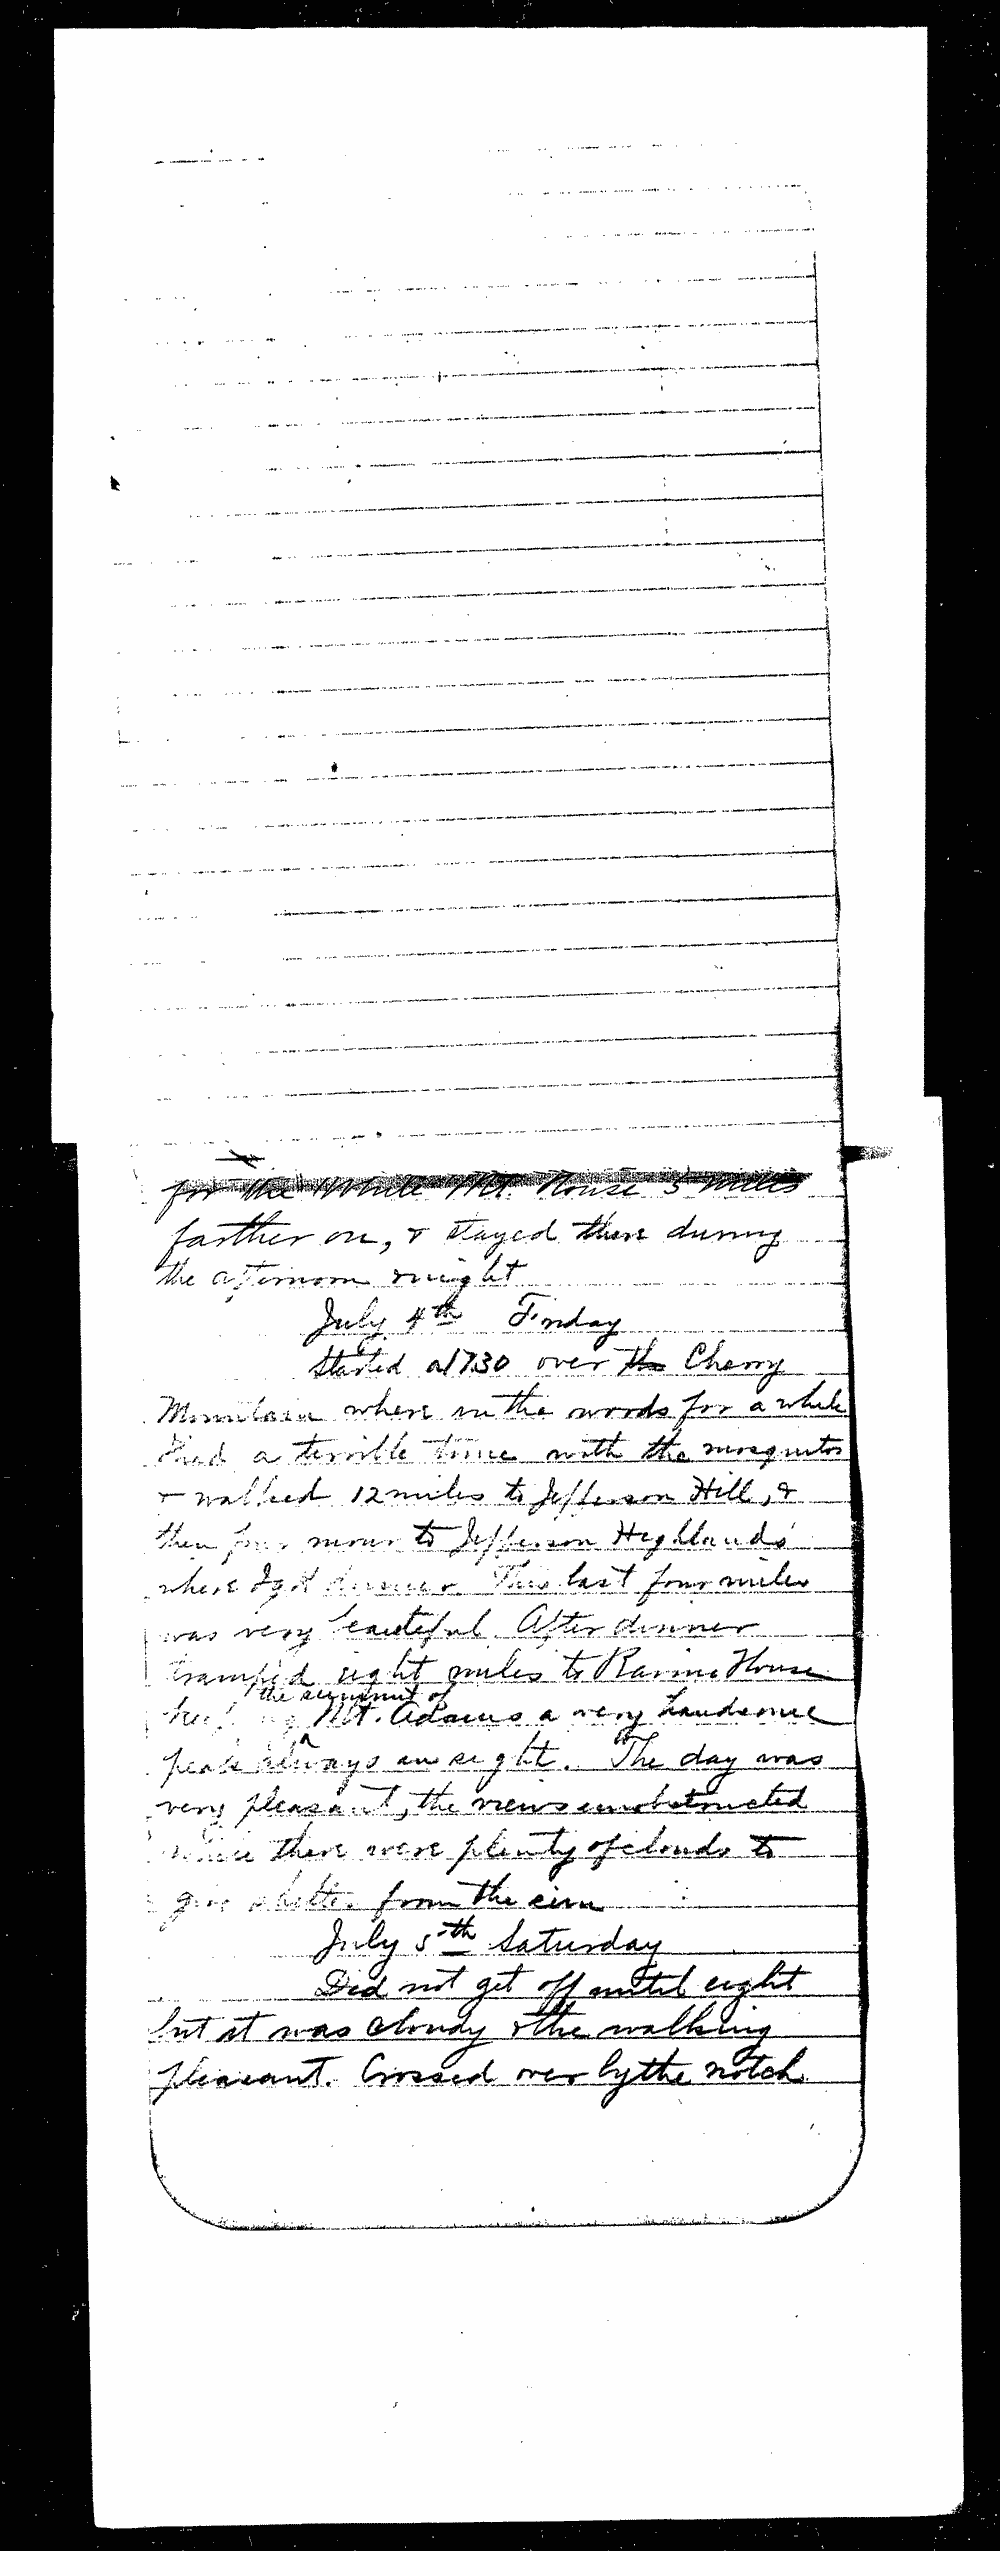 for the White Mt. House 5 miles
farther on, & stayed there during
the afternoon & night
July 4th Friday
Started at 7.30 over the Cherry
Mountain where in the woods for a while
I had a terrible time with the mosquitos
& walked 12 miles to Jefferson Hill, &
then four more to Jefferson Highlands
where I got dinner. This last four miles
was very beautiful. After dinner
tramped eight miles to Ravine House
the summit of
keeping Mt. Adams a very handsome
peak always in sight. The day was
very pleasant, the views unobstructed
there were plenty of clouds to
give shelter from the sun
July 5th Saturday
Did not get off until eight
but it was cloudy & the walking
pleasant. Crossed over by the notch